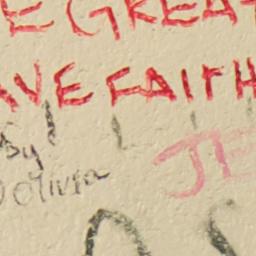 E GREAT
AVE FAITH
By
Olivia
JE